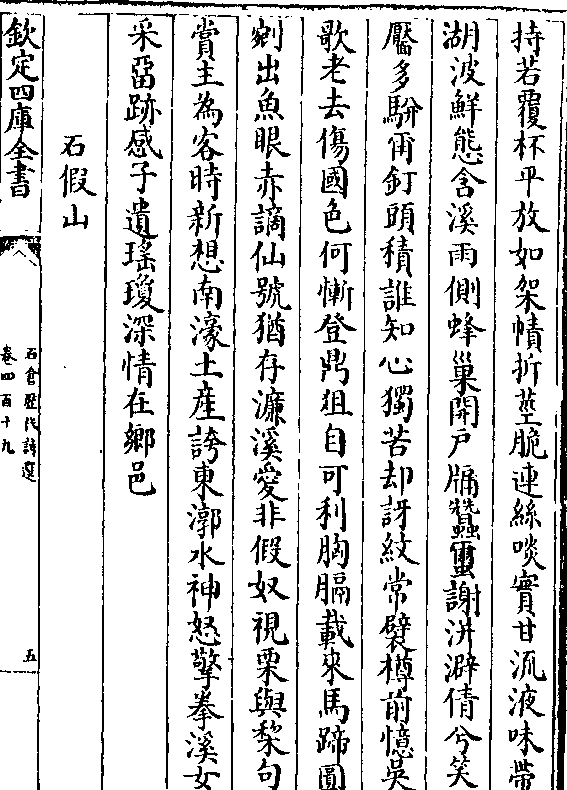 持若覆杯平放如架幘折莖脆連絲啖實甘流液味帶
湖波鮮態含溪雨側蜂巢開戶牖蠶繭謝洴澼倩兮笑
靨多駢而釘頭積誰知心獨苦却訝紋常襞樽前憶吳
歌老去傷國色何慚登鼎俎自可利胸膈載來馬蹄圓
剜出魚眼赤謫仙號猶存濂溪愛非假奴視栗與棃句
賞主為客時新想南濠土産誇東漷水神怒擎拳溪女
采留跡感子遺瑤瓊深情在鄉邑
石假山
欽定四庫全書
石倉歷代詩選
卷四百十九
五